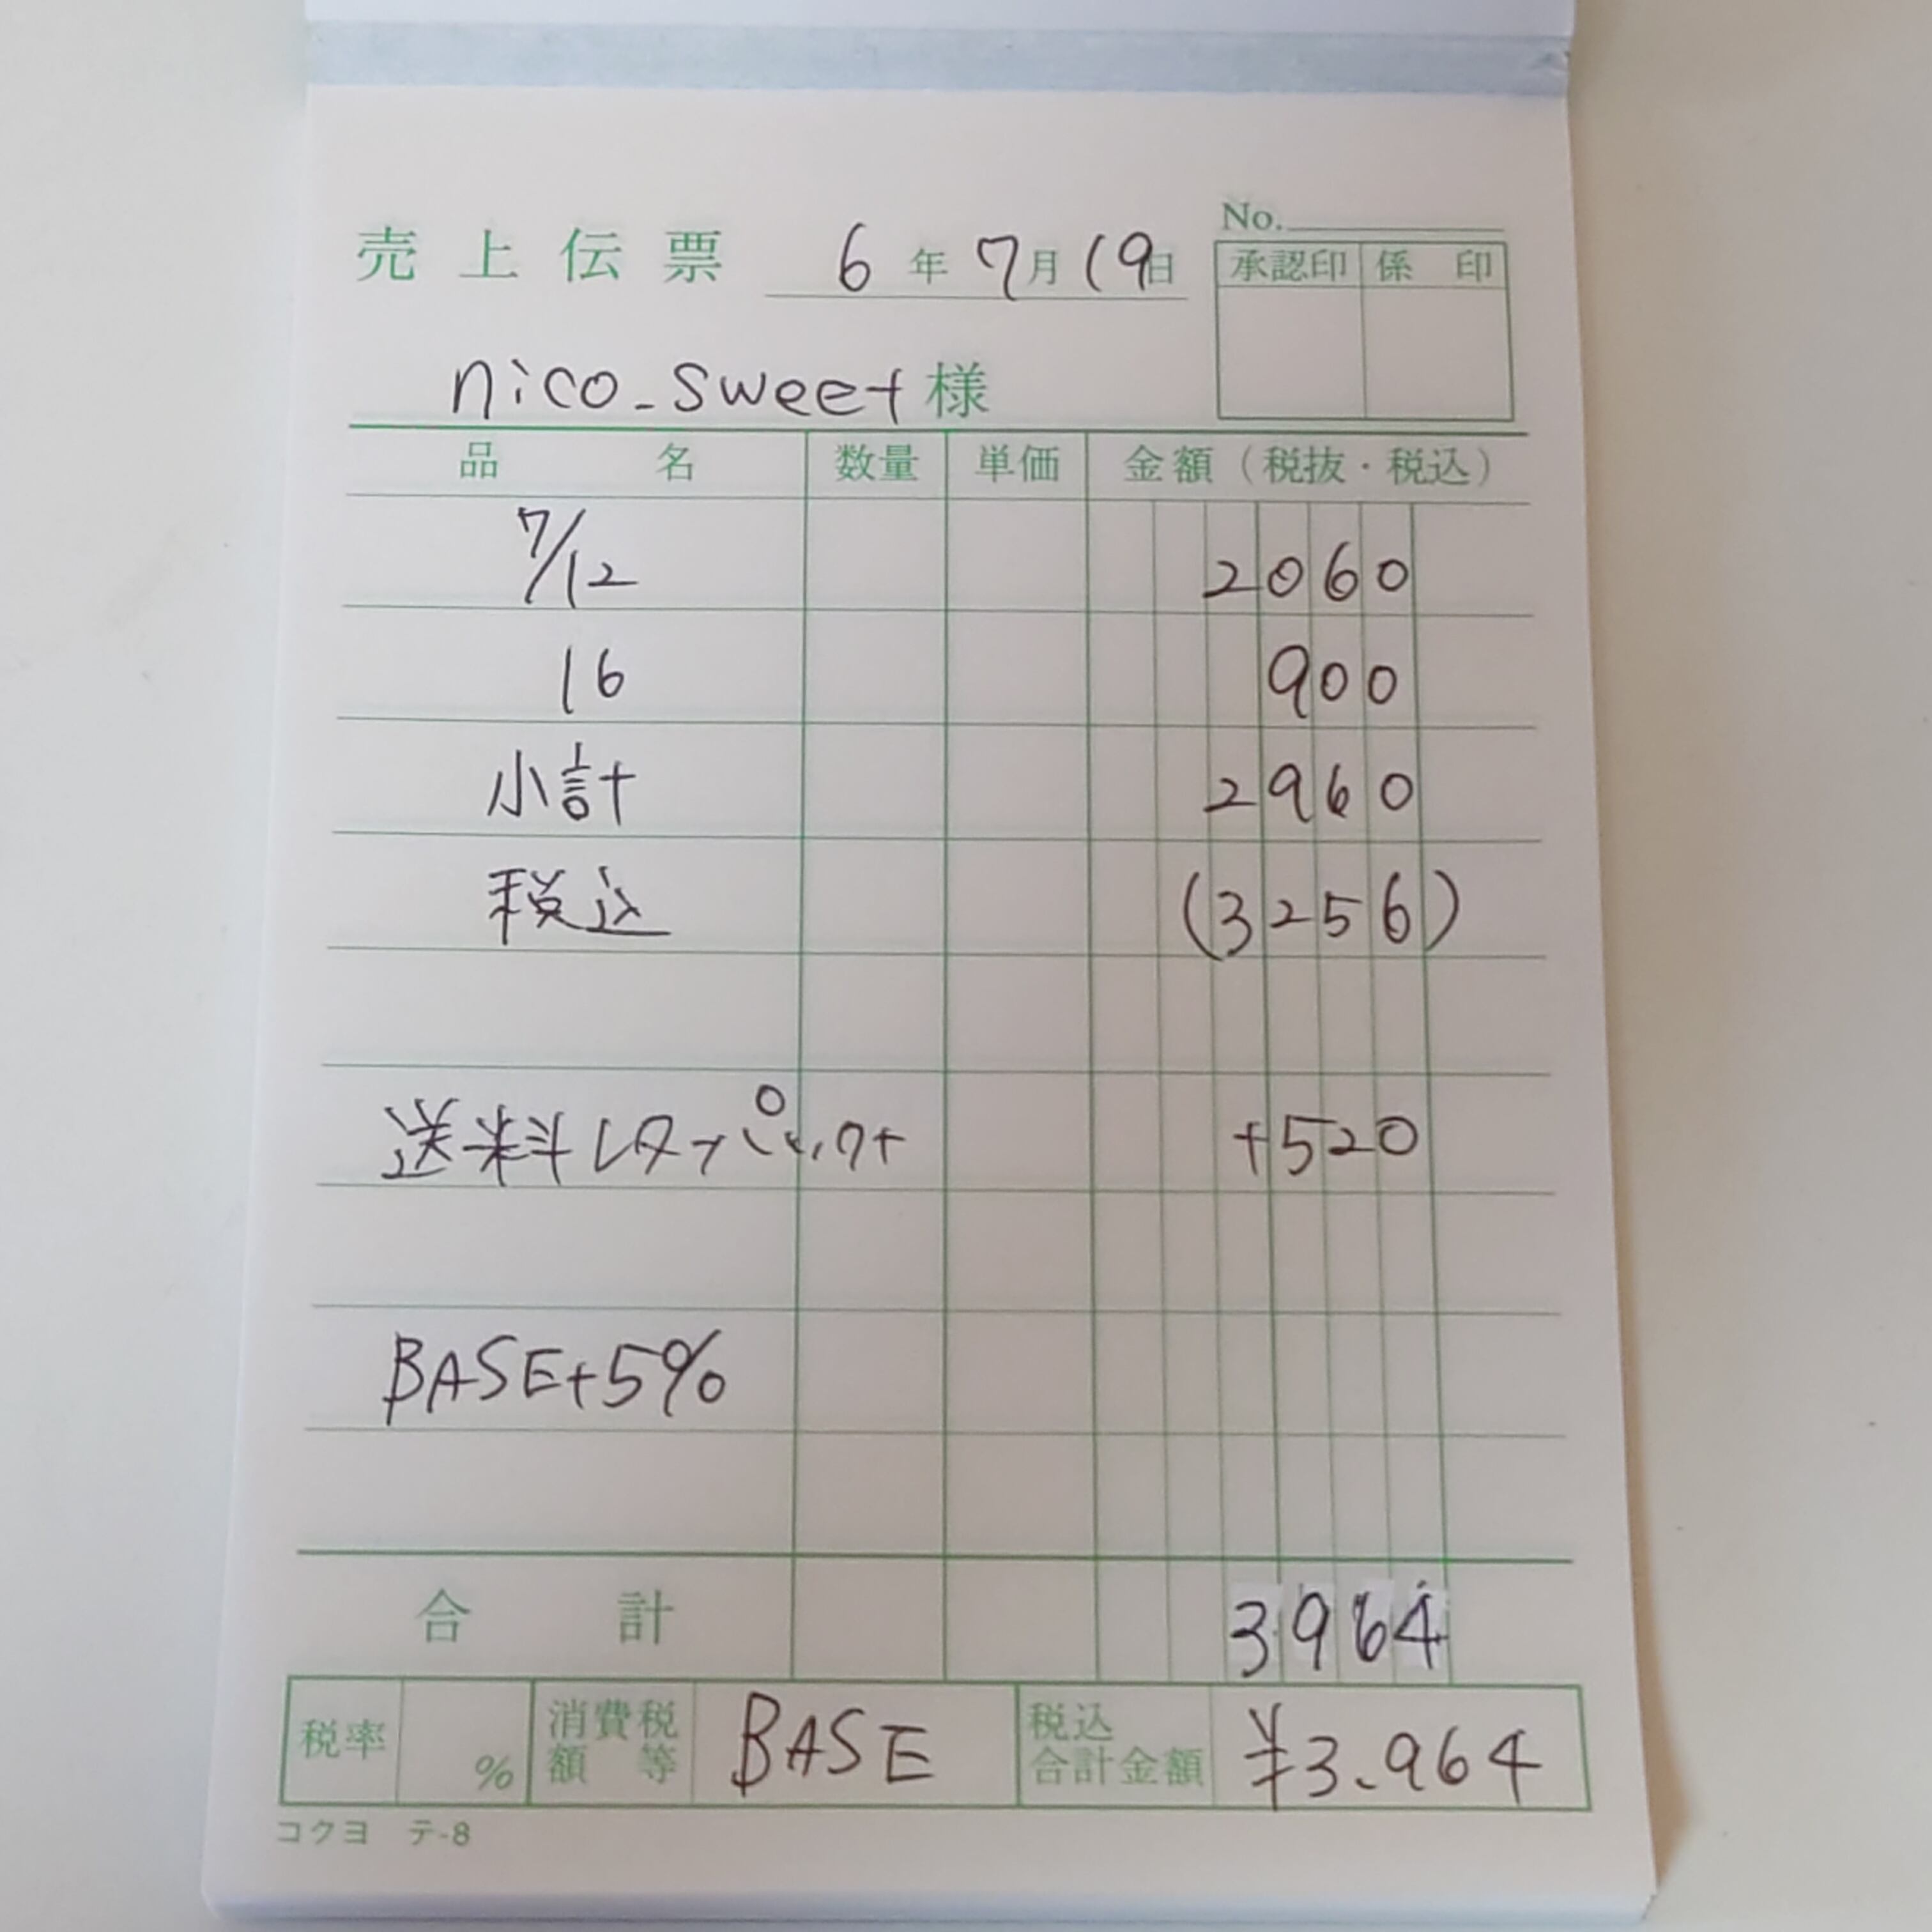 No.
売上伝票 6年7月19日
承認印 係印
nico-sweet様
品名 数量 単価 金額(税抜・税込)
7/12 2060
16 900
小計 2960
税込 (3256)
送料レターパック+ +520
BASE+5%
合計 3964
税率 % 消費税額等 BASE 税込合計金額 ¥3.964
コクヨ テ-8